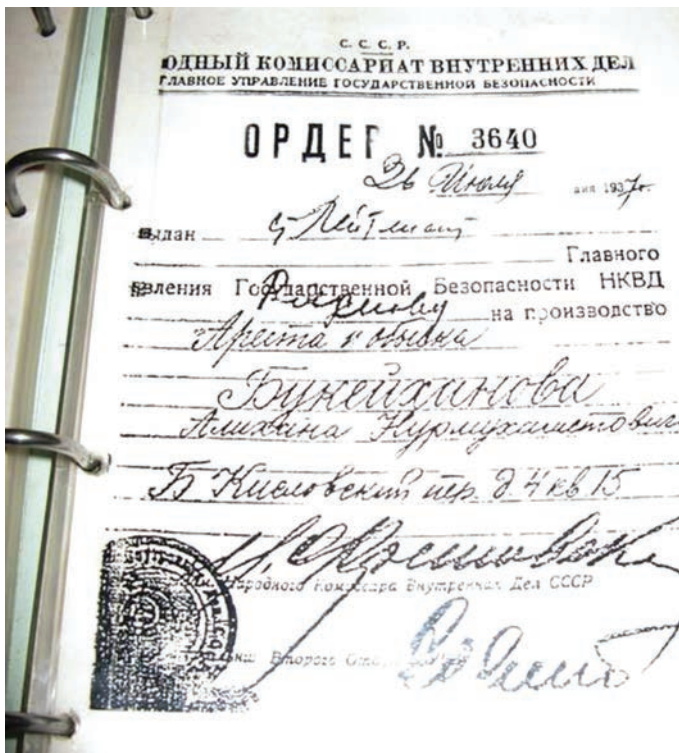 С. С. С. Р.
ОДНЫЙ КОМИССАРИАТ ВНУТРЕННИХ ДЕЛ
ГЛАВНОЕ УПРАВЛЕНИЕ ГОСУДАРСТВЕННОЙ БЕЗОПАСНОСТИ
ОРДЕР № 3640
26 Июля 1937г.
выдан
Главного
авления Государственной Безопасности НКВД
на производство
Ареста и обыска
Букейханова
Алихана Нурмухаметович
Б Кисловский пер. д. 4 кв 15
Народного Комиссара Внутренних Дел СССР
Второго